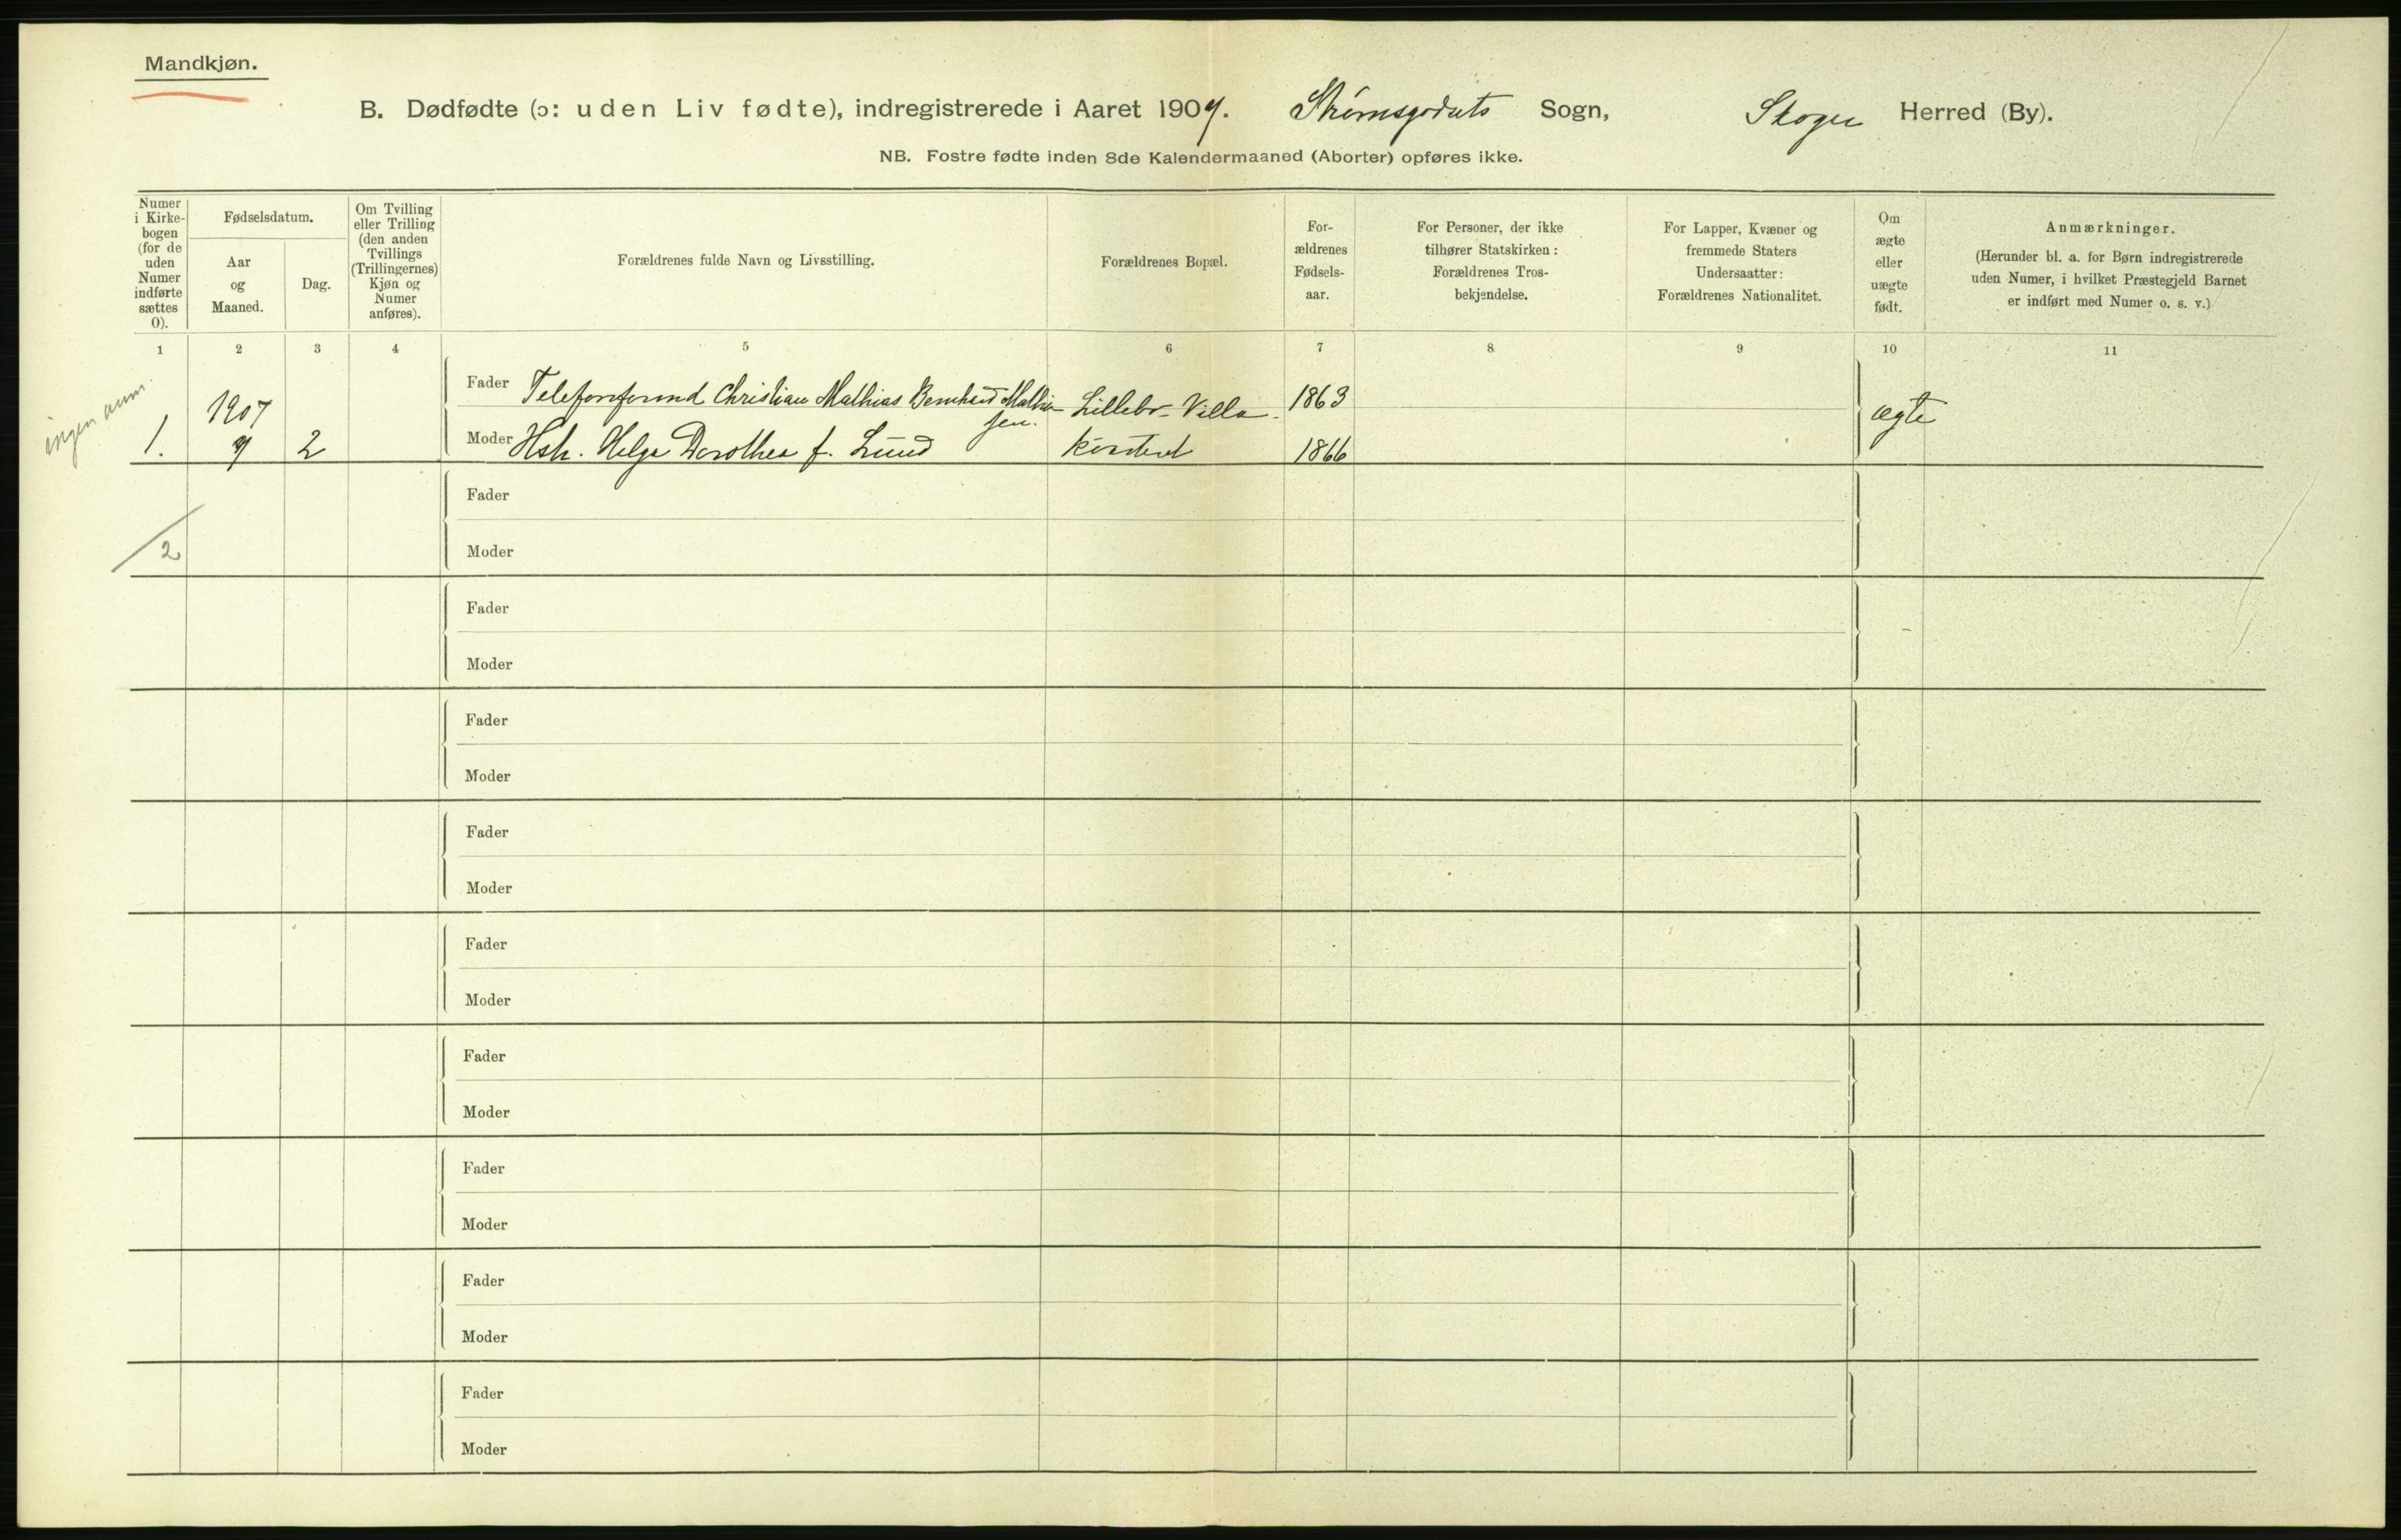 Mandkjøn.
B. Dødfødte (ɔ: uden Liv fødte), indregistrerede i Aaret 1907. Strømsgodets Sogn, Skoger Herred (By).
NB. Fostre fødte inden 8de Kalendermaaned (Aborter) opføres ikke.
Numer i Kirkebogen (for de uden Numer indførte sættes 0).
Fødselsdatum.
Aar og Maaned.
Dag.
Om Tvilling eller Trilling (den anden Tvillings (Trillingernes) Kjøn og Numer anføres).
Forældrenes fulde Navn og Livsstilling.
Forældrenes Bopæl.
For-ældrenes Fødsels-aar.
For Personer, der ikke tilhører Statskirken: Forældrenes Tros-bekjendelse.
For Lapper, Kvæner og fremmede Staters Undersaatter: Forældrenes Nationalitet.
Om ægte eller uægte født.
Anmærkninger.
(Herunder bl. a. for Børn indregistrerede uden Numer, i hvilket Præstegjeld Barnet er indført med Numer o. s. v.)
1 2 3 4 5 6 7 8 9 10 11
ingen
1. 1907 7 2
Fader Christian Mathias Bernhard Mathiasen. Lillebo Villa 1863 ægte
Moder Hstr. Helga Dorothea f. Lund 1866
Fader
2
Moder
Fader
Moder
Fader
Moder
Fader
Moder
Fader
Moder
Fader
Moder
Fader
Moder
Fader
Moder
Fader
Moder